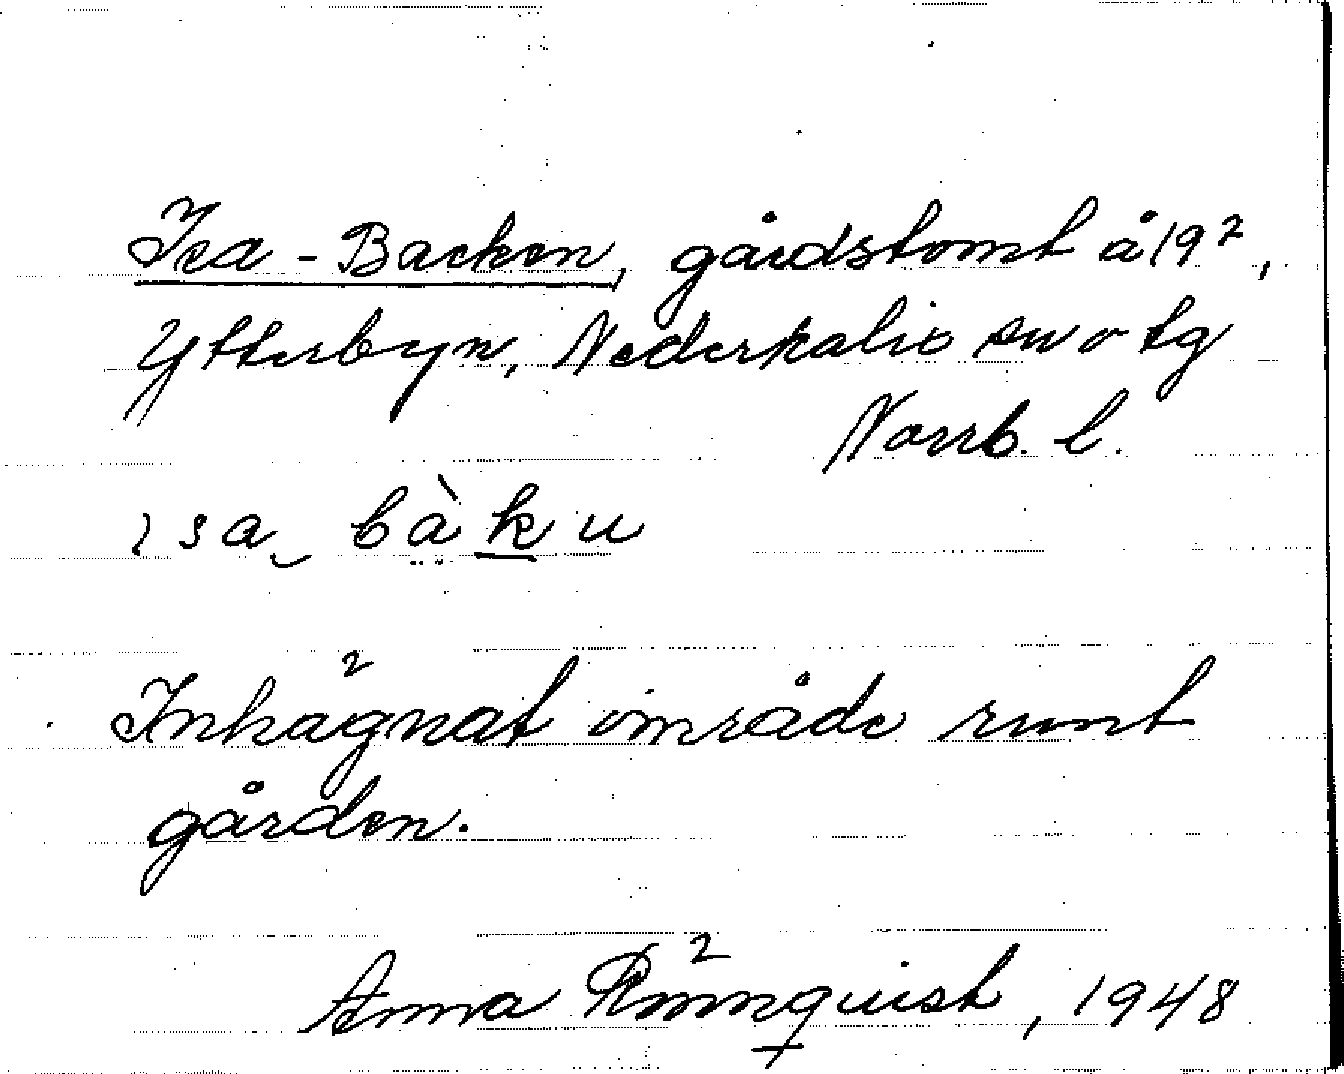 Isa-Backen, gårdstomt å 19²,
Ytterbyn, Nederkalix sn o tg
Norrb. l.
ɩsa‿ bàku
Inhägnat område runt
gården.
Anna Rönnquist, 1948